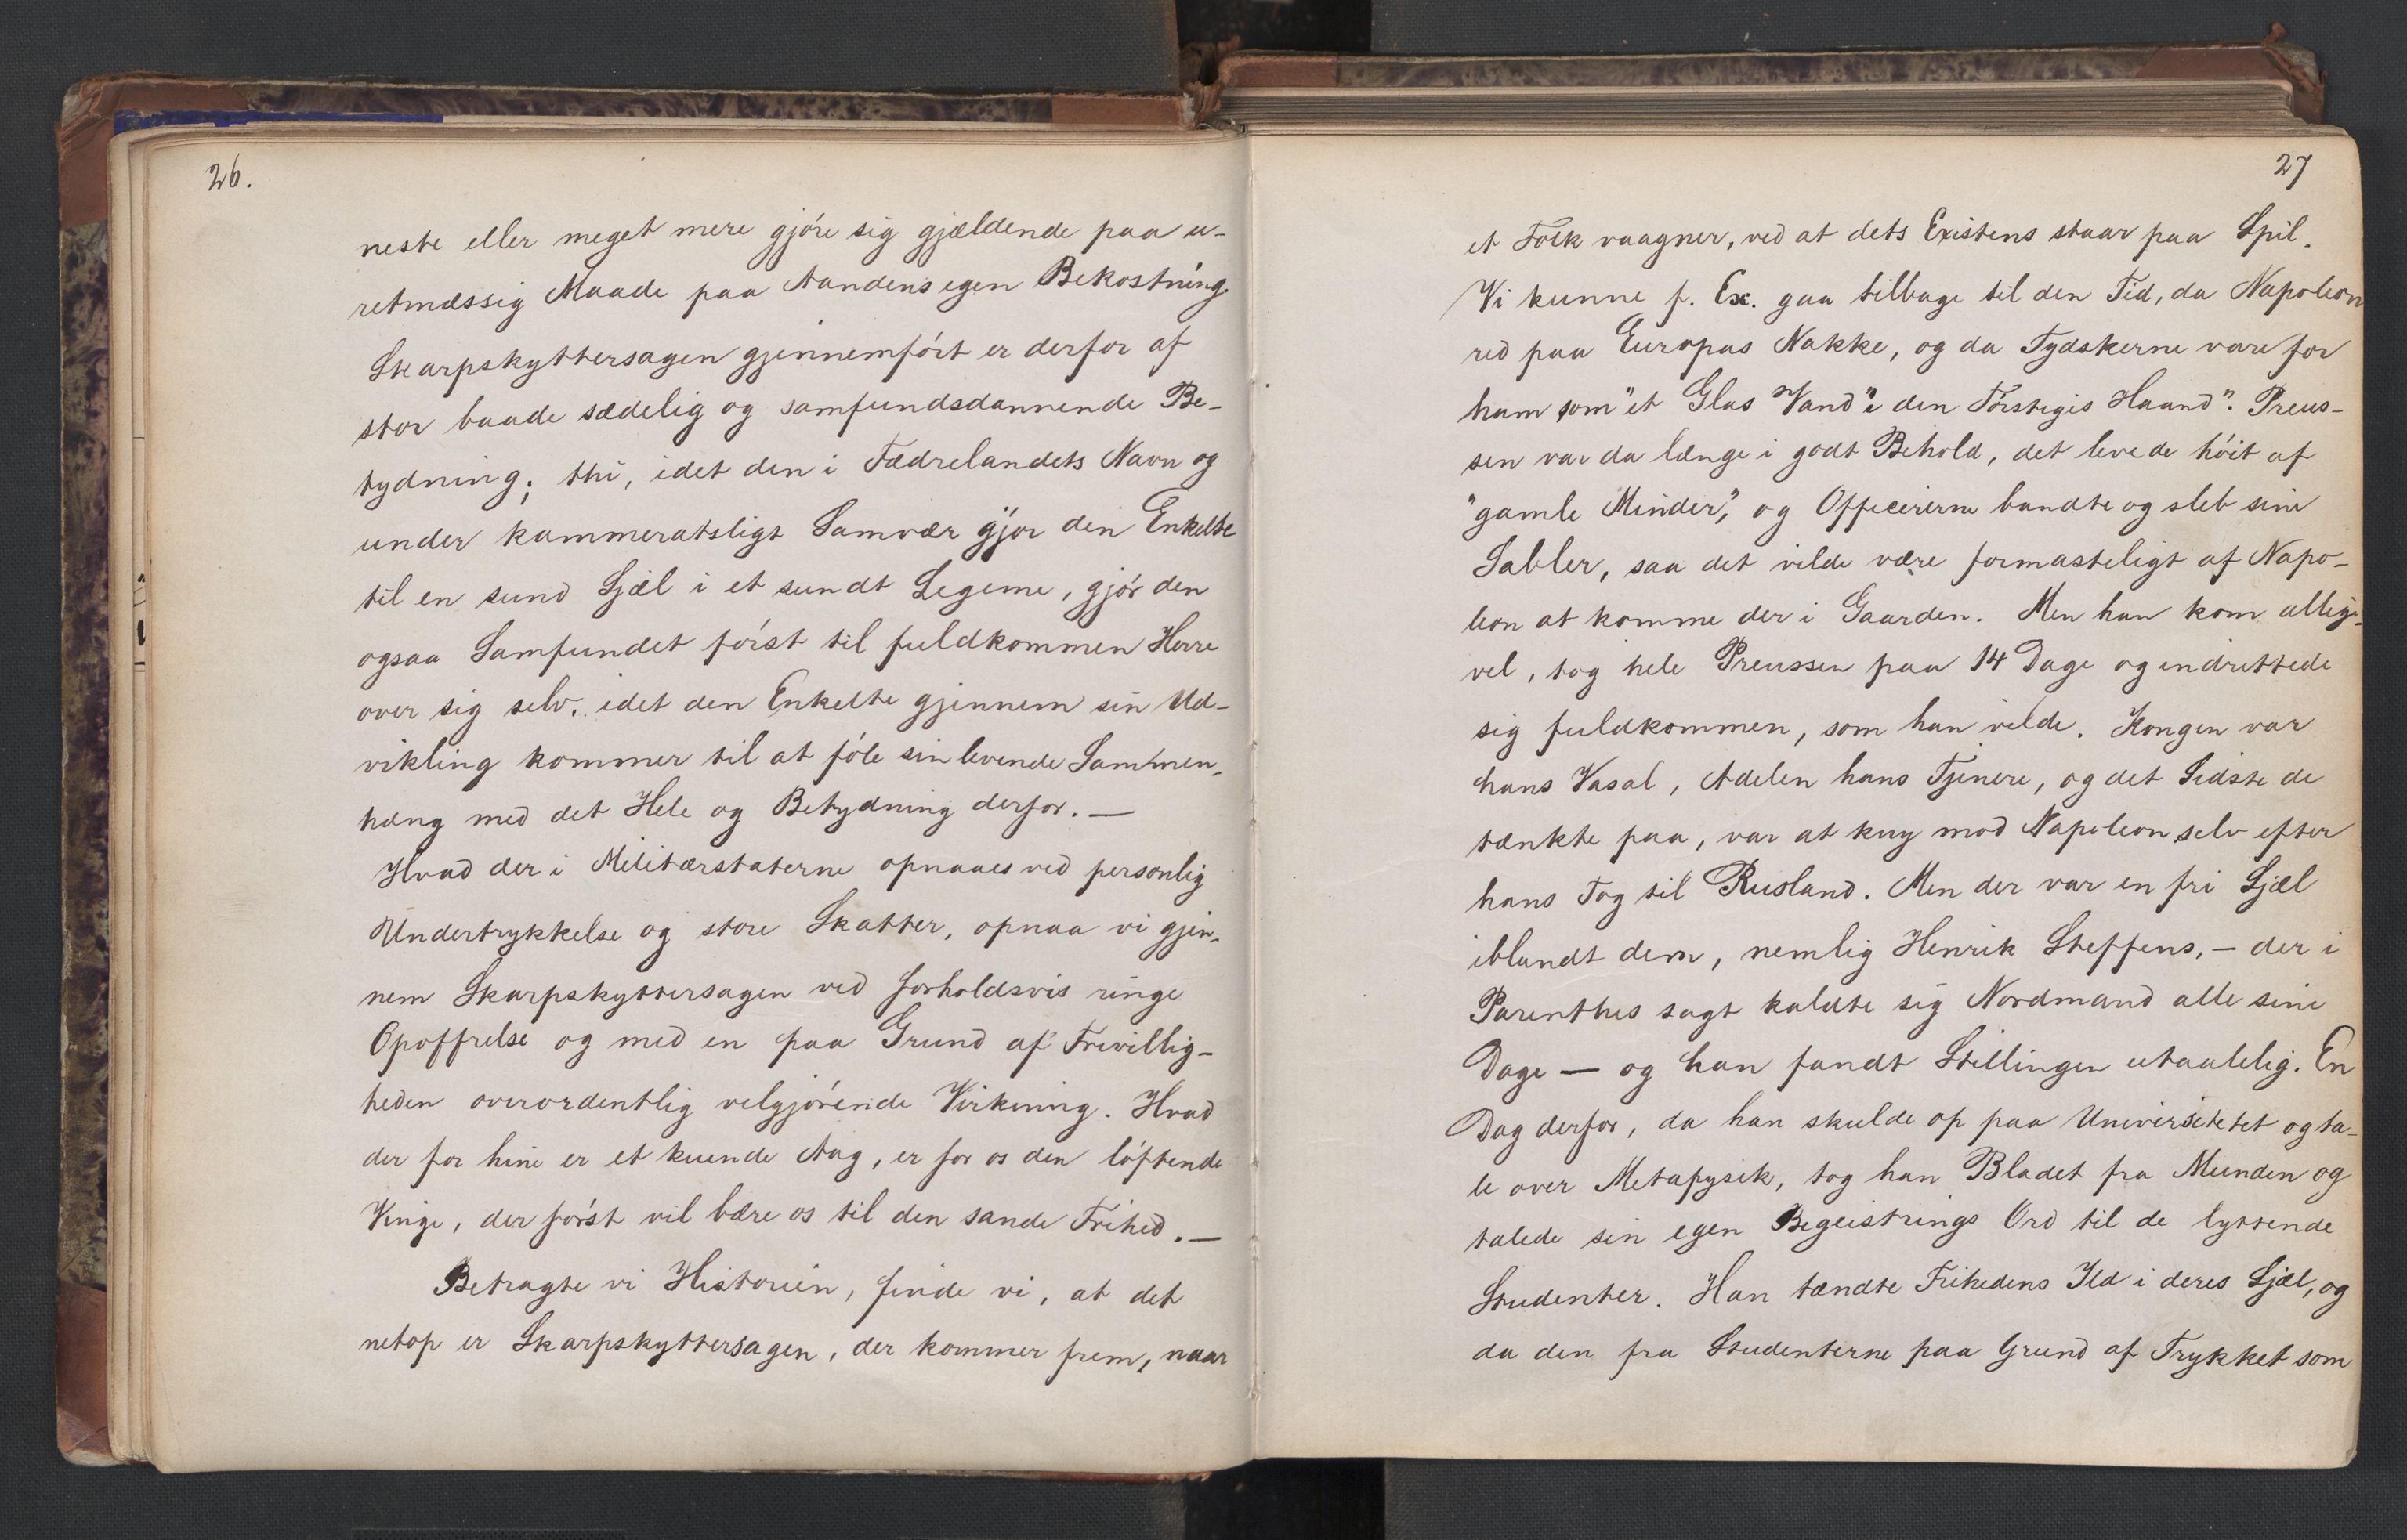 26.
neste eller meget mere gjøre sig gjældende paa u-
retmæssig Maade paa Aandens egen Bekostning.
Skarpskyttersagen gjennemført er derfor af
stor baade sædelig og samfundsdannende Be-
tydning; thi, idet den i Fædrelandets Navn og
under kammeratsligt Samvær gjør den Enkelte
til en sund Sjæl i et sundt Legeme, gjør den
ogsaa Samfundet først til fuldkommen Herre
over sig selv, idet den Enkelte gjennem sin Ud-
vikling kommer til at føle sin levende Sammen-
hæng med det Hele og Betydning derfor. —
Hvad der i Militærstaterne opnaaes ved personlig
Undertrykkelse og store Skatter, opnaa vi gjen-
nem Skarpskyttersagen ved forholdsvis ringe
Opoffrelse og med en paa Grund af Frivillig-
heden overordentlig velgjørende Virkning. Hvad
der for hine er et kuende Aag, er for os den løftende
Vinge, der først vil bære os til den sande Frihed. —
Betragte vi Historien, finde vi, at det
netop er Skarpskyttersagen, der kommer frem, naar
27
et Folk vaagner, ved at dets Existens staar paa Spil.
Vi kunne f. Ex. gaa tilbage til den Tid, da Napoleon
red paa Europas Nakke, og da Tydskerne vare for
ham som "et Glas Vand" i den Tørstiges Haand". Preus-
sen var da længe i godt Behold, det levede høit af
"gamle Minder", og Officererne bandte og sleb sine
Sabler, saa det vilde være formasteligt af Napo-
leon at komme der i Gaarden. Men han kom allige-
vel, tog hele Preussen paa 14 Dage og indrettede
sig fuldkommen, som han vilde. Kongen var
hans Vasal, Adelen hans Tjenere, og det Sidste de
tænkte paa, var at kny mod Napoleon selv efter
hans Tog til Rusland. Men der var en fri Sjæl
iblandt dem, nemlig Henrik Steffens, — der i
Parenthes sagt kaldte sig Nordmand alle sine
Dage — og han fandt Stillingen utaalelig. En
Dag derfor, da han skulde op paa Universitetet og ta-
le over Metafysik, tog han Bladet fra Munden og
talede sin egen Begeistrings Ord til de lyttende
Studenter. Han tændte Frihedens Ild i deres Sjæl, og
da den fra Studenterne paa Grund af Trykket som